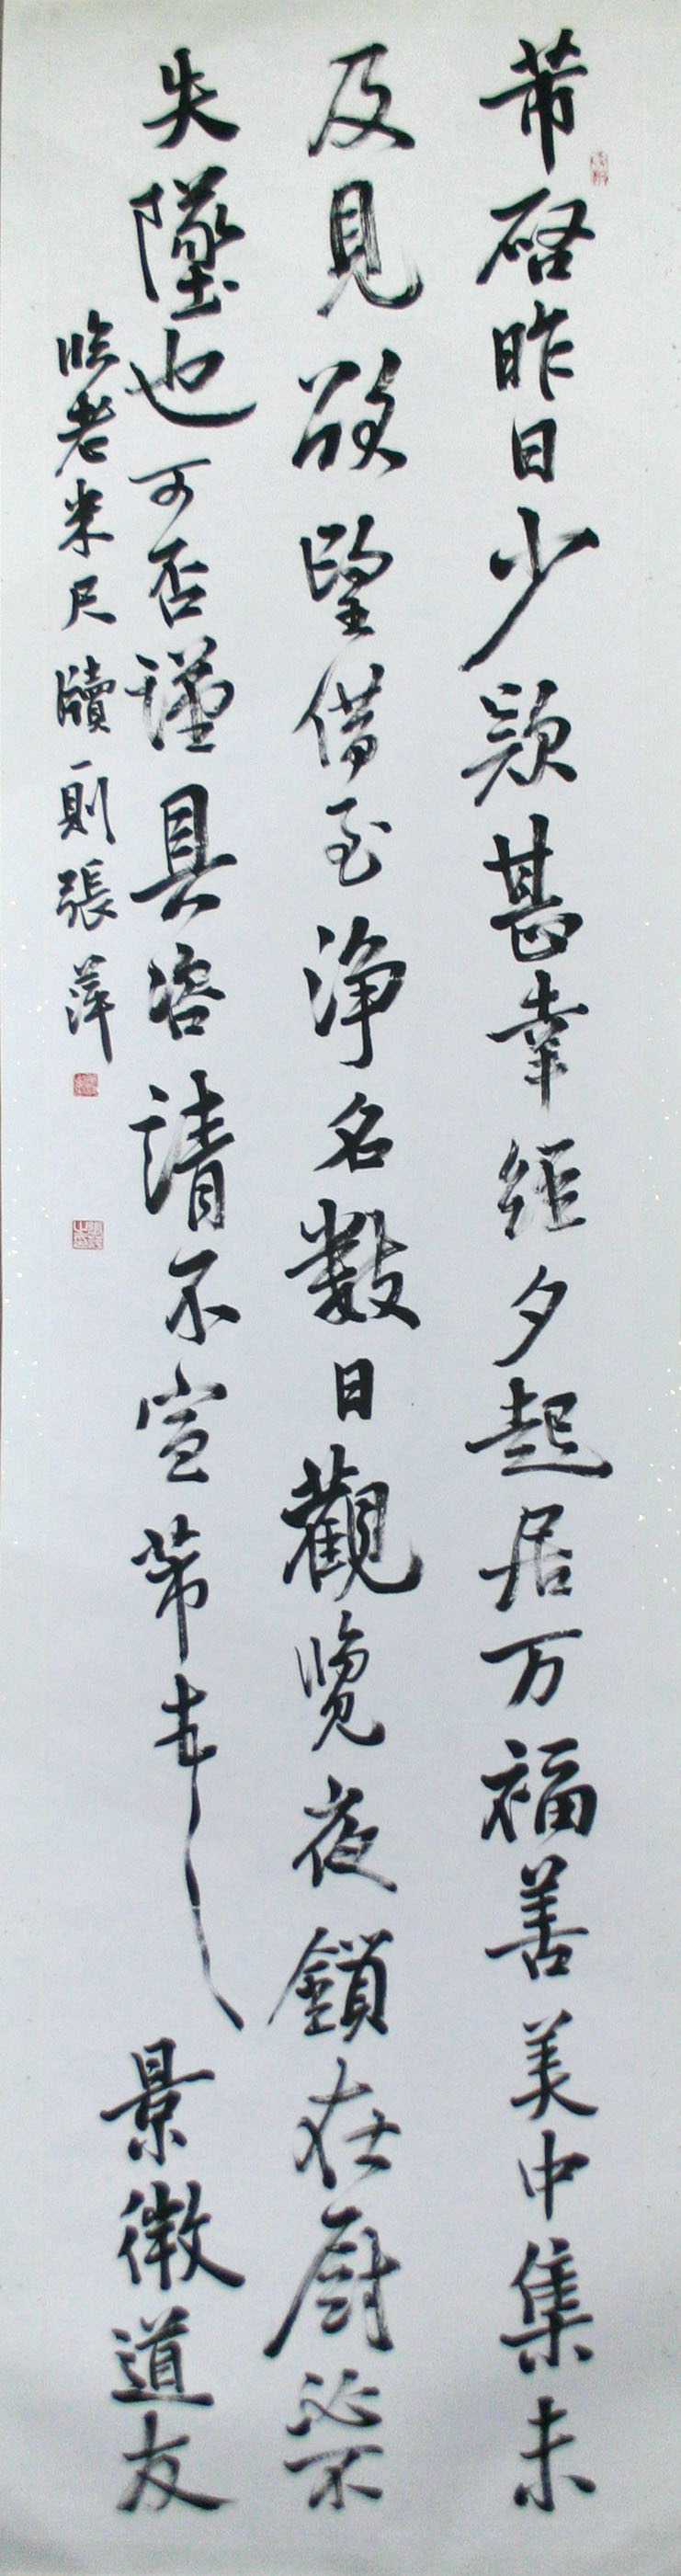 芾啓昨日少款甚幸經夕起居万福善美中集未
及見欲望借至浄名數日觀覽夜鎖在厨必不
失墜也可否謹具咨請不宣芾頓首 景徽道友
臨老米尺牘一則張萍